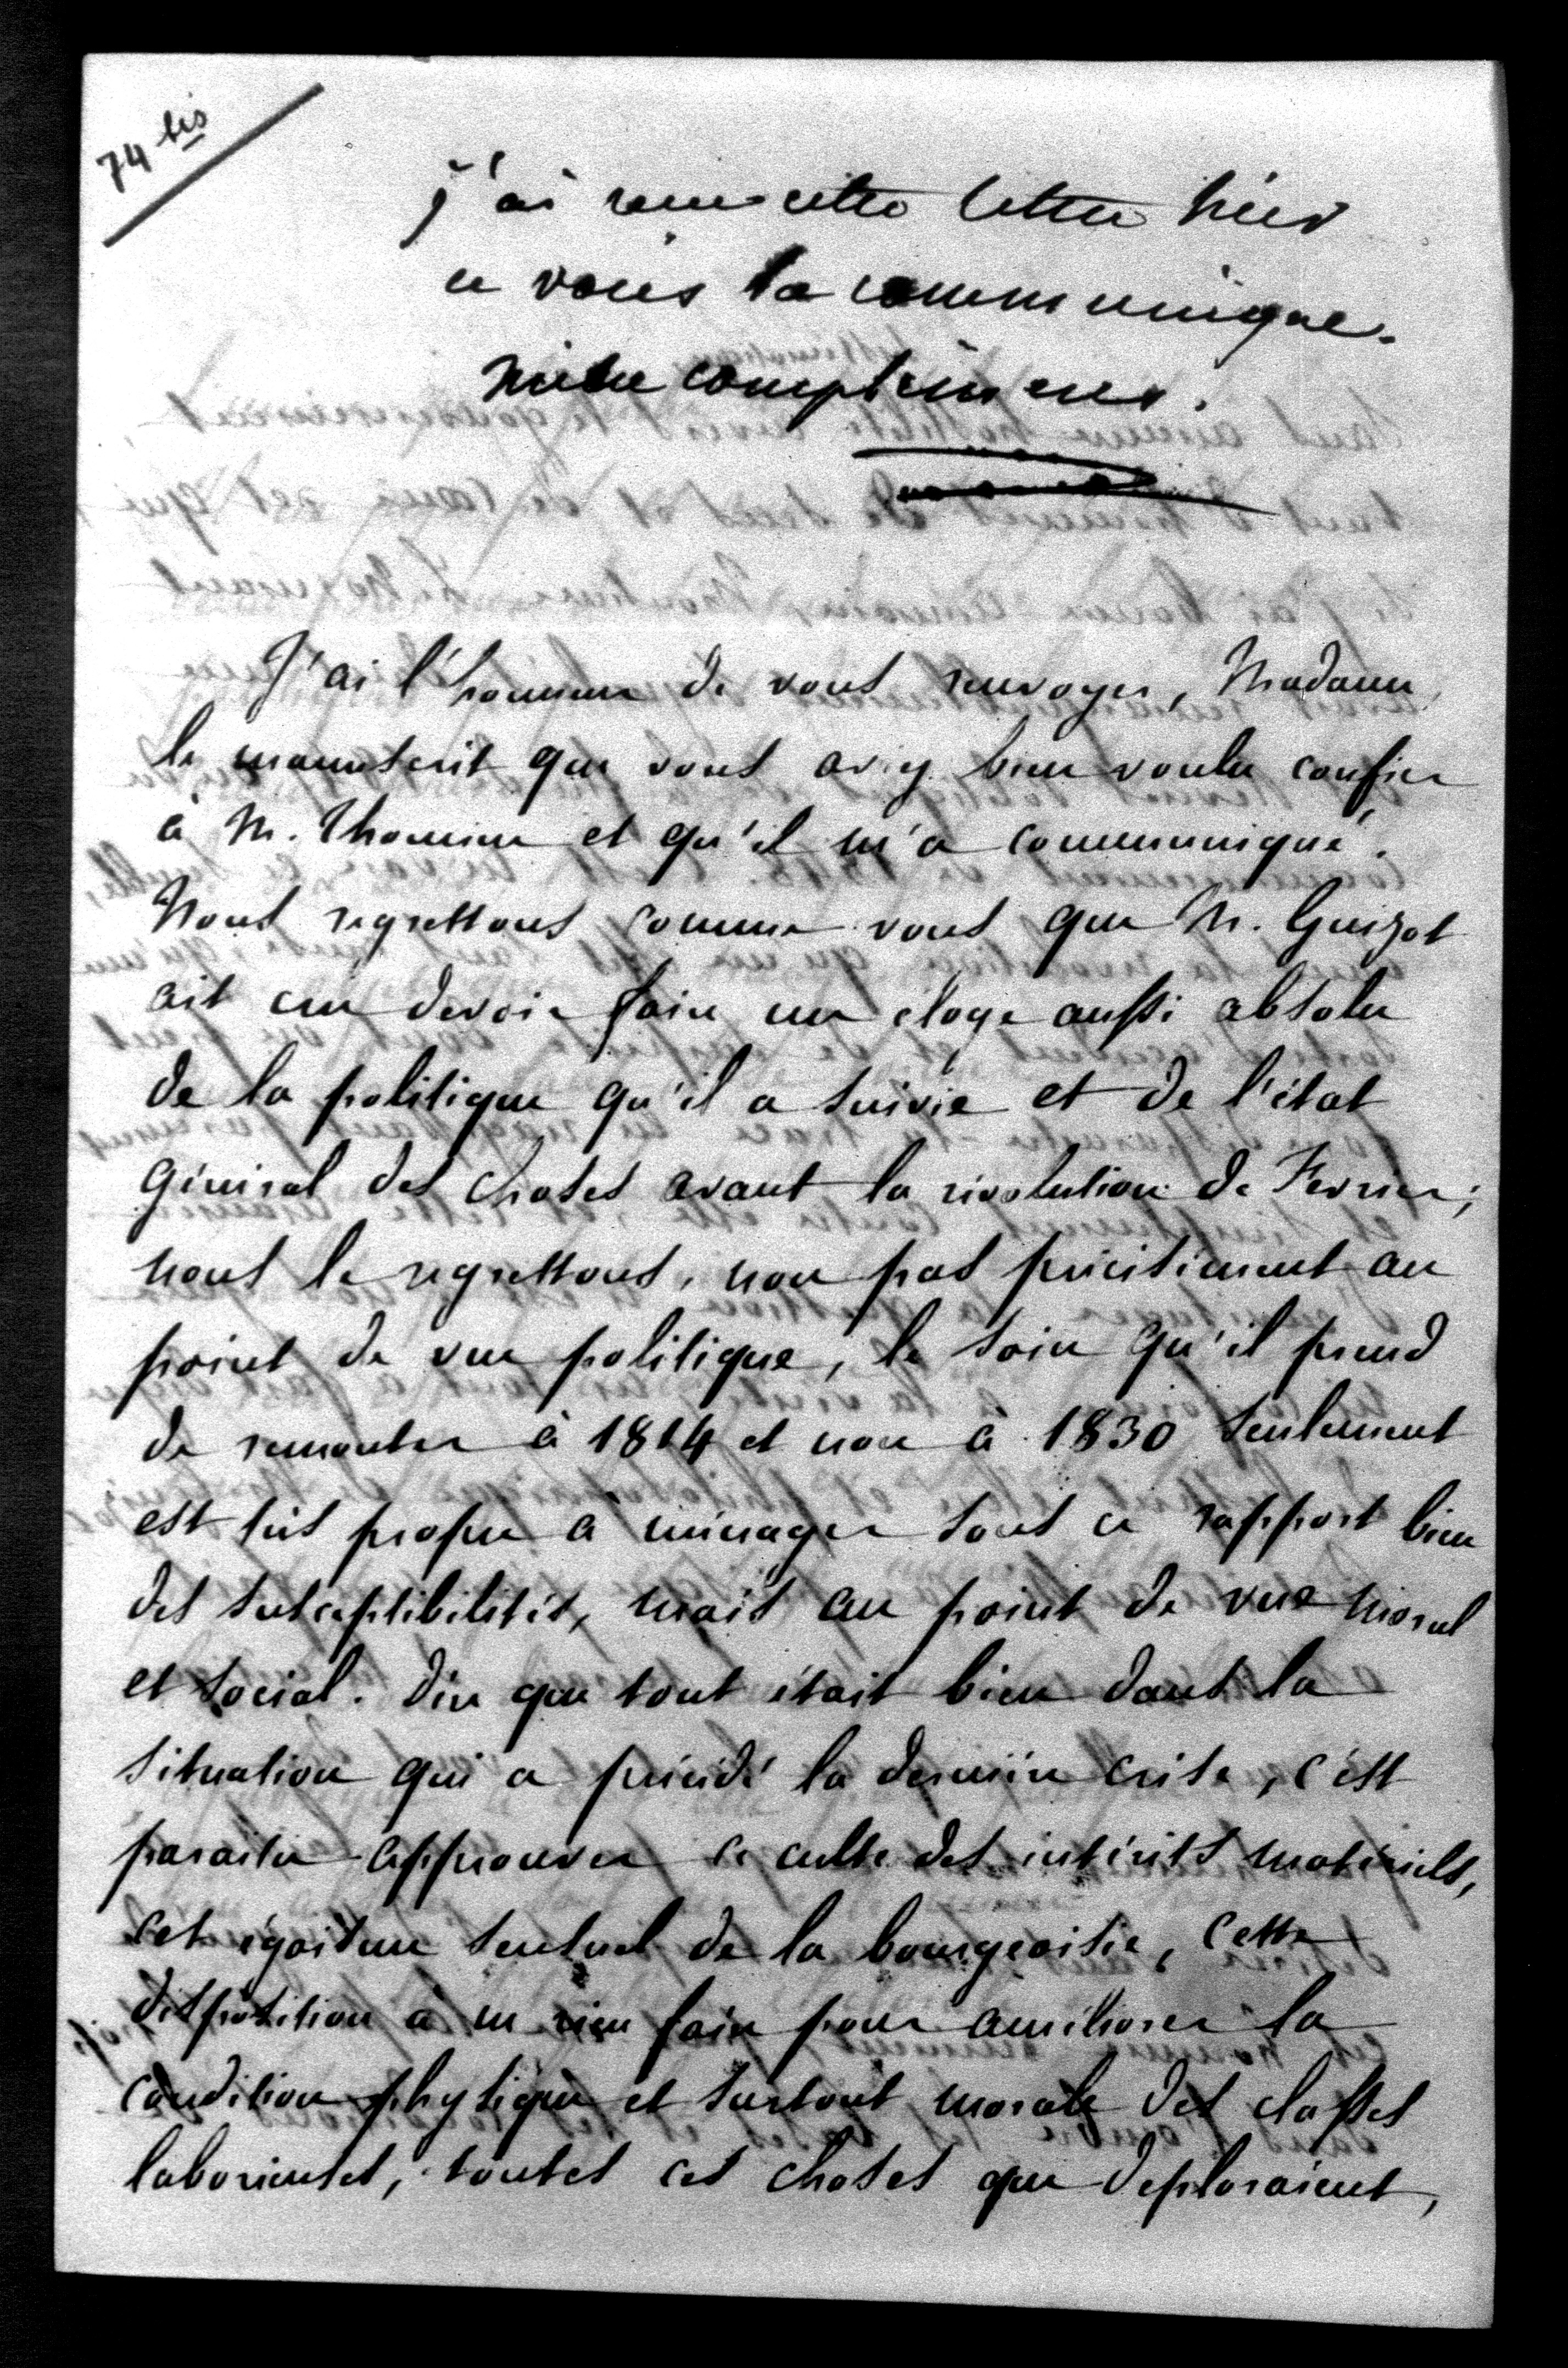 74 bis
j'ai reçu cette lettre hier
et vous la communique.
mille complimens.
J'ai l'honneur de vous renvoyer, Madame,
le manuscrit que vous aviez bien voulu confier
à M. Thomine et qu'il m'a communiqué.
Nous regrettons comme vous que M. Guizot
ait cru devoir faire un éloge aussi absolu
de la politique qu'il a suivie et de l'état
général des choses avant la révolution de Fevrier;
nous le regrettons, non pas précisément au
point de vue politique, le soin qu'il prend
de remonter à 1814 et non à 1830 seulement
est très propre à ménager sous ce rapport bien
des susceptibilités, mais au point de vue moral
et social. Dire que tout était bien dans la
situation qui a précédé la dernière crise, c'est
paraitre approuver ce culte des intérêts matériels,
cet égoisme sensuel de la bourgeoisie, cette
disposition à ne rien faire pour améliorer la
condition physique et surtout morale des classes
laborieuses, toutes ces choses que deploraient,